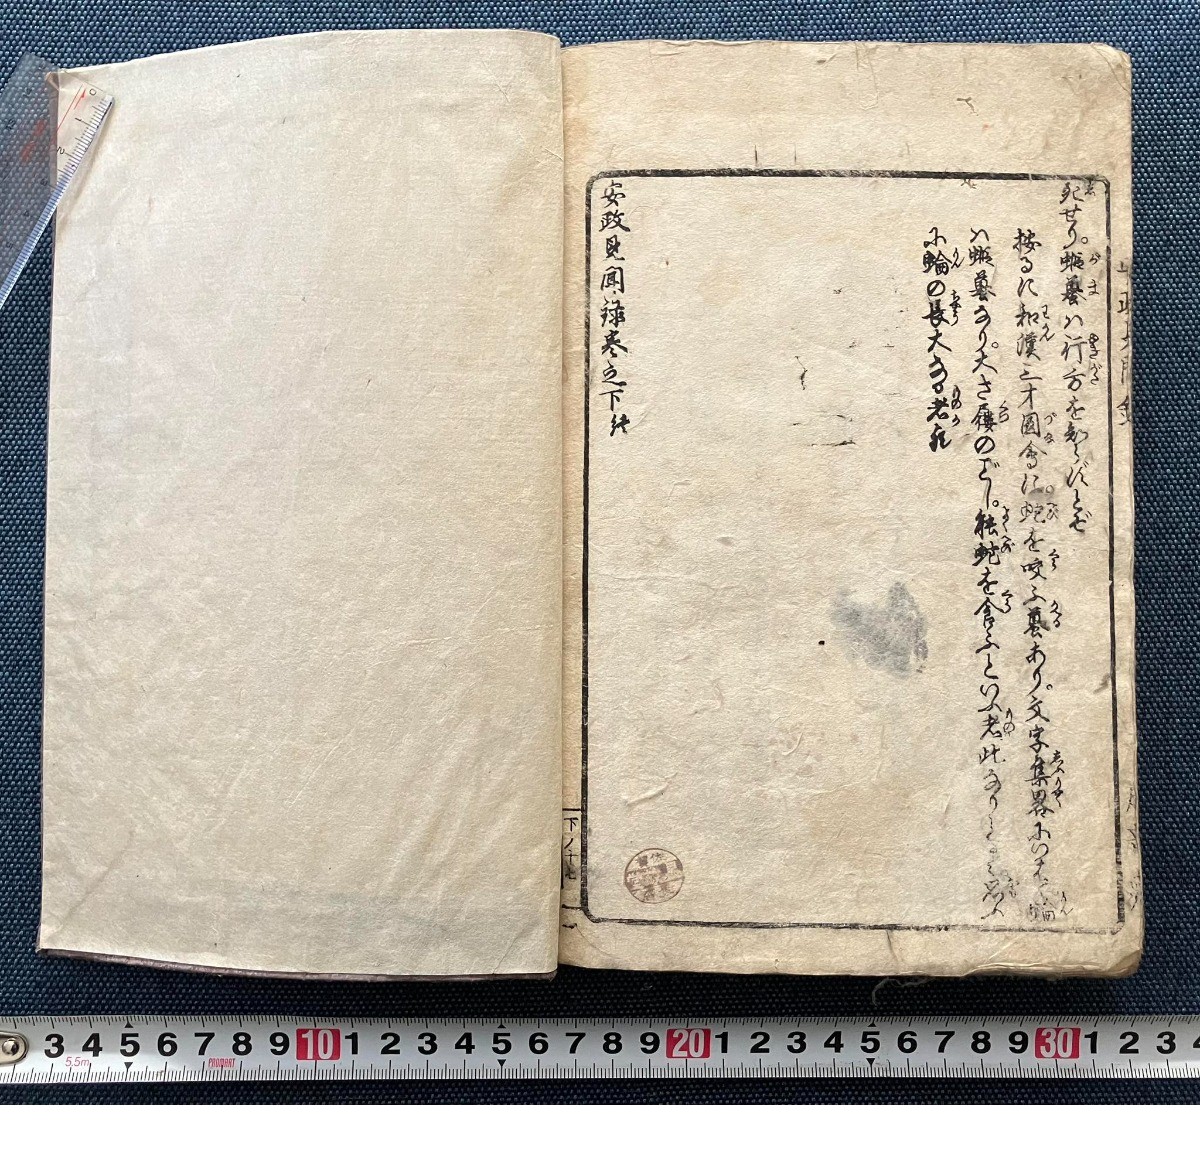 死せり。蝦蟇ハ行方を知らずとぞ
按るに和漢三才圖會に。蛇を咬ふ蟇あり。文字集畧にいはく蜦
ハ蝦蟇なり。大さ履のごとし。能蛇を食ふといふ者此なりと
に蜦の長大なる者
安政見聞録巻之下終
下ノ十七
3 4 5 6 7 8 9 10 1 2 3 4 5 6 7 8 9 20 1 2 3 4 5 6 7 8 9 30 1 2 3 4
5.5m PROMART